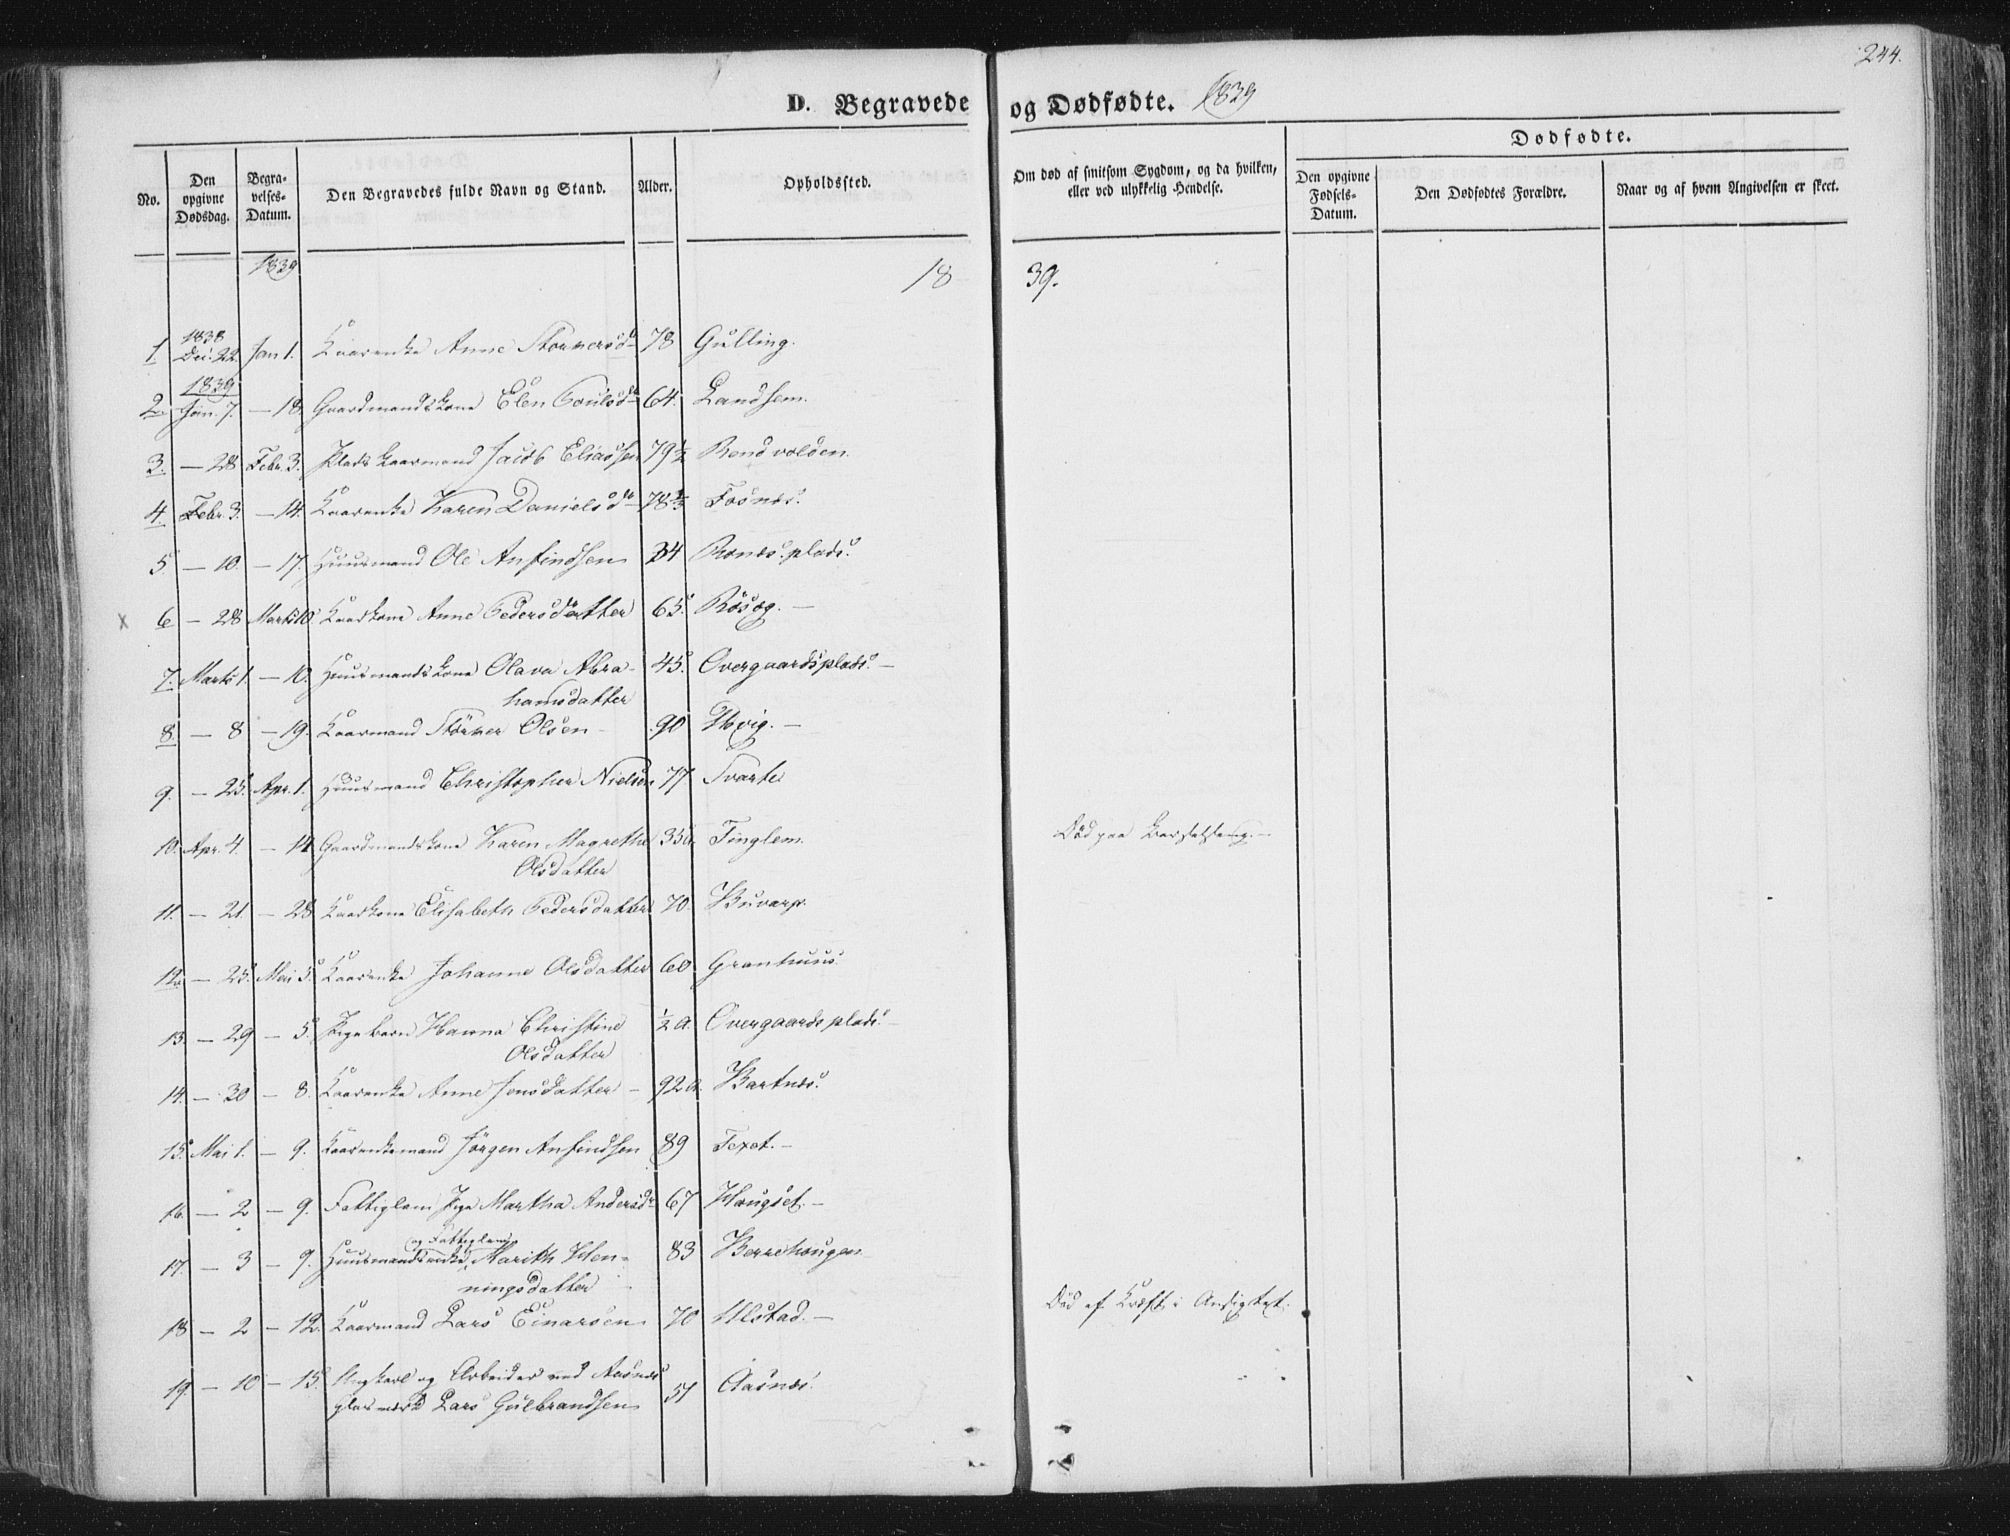 244.
D. Begravede og Dødfødte. 1839
No.
Den opgivne Dødsdag.
Begravelses-Datum.
Den Begravedes fulde Navn og Stand.
Alder.
Opholdssted.
Om død af smitsom Sygdom, og da hvilken, eller ved ulykkelig Hendelse.
Dødfødte.
Den opgivne Fødsels-Datum.
Den Dødfødtes Forældre.
Naar og af hvem Angivelsen er skeet.
1839 1839.
1838
1. Dec. 22. Jan 1. Kaarenke Anne Stornersdr 78 Gulling.
1839
2. Jan. 7. — 18 Gaardmandskone Elen Poulsdr 64. Landsem.
3. — 28 Febr. 3. Plads kaarmand Jacob Eliassen 79½ Rondvolden.
4. Febr. 3. — 14. Kaarenke Karen Danielsdr 78⅓ Fosnæs.
5. — 10. — 17. Huusmand Ole Anfindsen 34 Rones. plads.
x 6 — 28 Marts 10 Kaarkone Anne Pedersdatter 65. Røsæg. —
7. Marts 1. — 10. Huusmandskone Olava Abra-
hamsdatter 45. Overgaardsplads. —
8. — 8 — 19. Kaarmand Störner Olsen 90 Hovig. —
9. — 25. Apr. 1. Huusmand Christopher Nielsen 77 Svarte
10. Apr. 4. — 14 Gaardmandskone Karen Magrethe
Olsdatter 35 a. Tinglem. Död paa Barselseng. —
11. — 21 — 28 Kaarkone Elisabeth Pedersdatter 70. Buvarp.
12. — 25. Mai 5. Kaarenke Johanne Olsdatter 60 Granhuus.
13. — 29 — 5. Pigebarn Hanna Christine
Olsdatter ½ a. Overgaards plads. —
14. — 30 — 8. Kaarenke Anne Jonsdatter — 92 a. Bartnæs.
15. Mai 1. — 9. Kaarenkemand Jörgen Anfindsen 89 Texet. —
16. — 2 — 9. Fattiglem Pige Martha Andersdr 67 Haugset. —
og Fattiglem
17. — 3 — 9. Huusmandsenke, Marith Hen-
ningsdatter 83 Berrehaugen
18 — 2 — 12. Kaarmand Lars Einarsen 70 Ulstad. — Död af Kræft i Ansigtet.
19 — 10 — 15. Ungkarl og Arbeider ved Aasnæs
Glasværk Lars Gulbrandsen 51 Aasnæs.